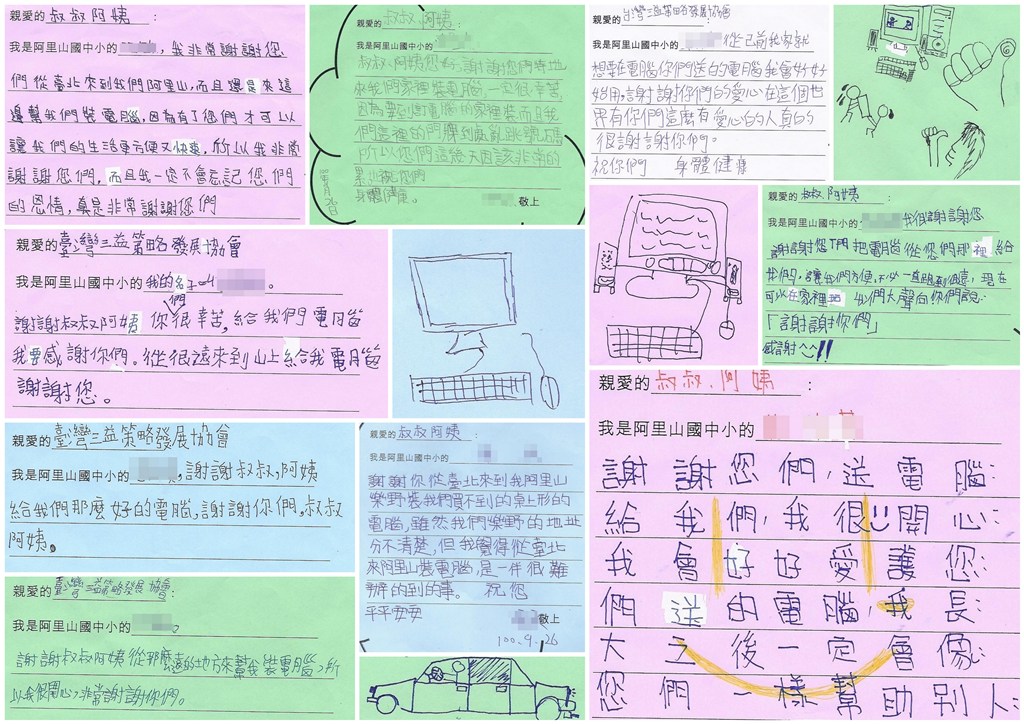 親愛的叔叔阿姨:
我是阿里山國中小的,我非常謝謝您
們從臺北來到我們阿里山,而且還是來這
邊幫我們裝電腦,因為有了您們才可以
讓我們的生活更方便又快樂,所以我非常
謝謝您們,而且我一定不會忘記您們
的恩情,真是非常謝謝您們
親愛的叔叔阿姨:
我是阿里山國中小的
叔叔阿姨您好,謝謝您們特地
來我們家裡裝電腦,一定很辛苦,
身體健康。
敬上
親愛的台灣三益策略發展協會
我是阿里山國中小的從己前我家就
想要在電腦你們送的電腦我會好好
使用,謝謝你們的愛心在這個世
界有你們這麼有愛心的人真的
很謝謝你們。
祝你們 身體健康
親愛的叔叔.阿姨:
我是阿里山國中小的我很謝謝您
謝謝您們把電腦從您們那裡給
我們,讓我們方便,
可以在家裡 我們大聲向你們說:
「謝謝你們」
感謝^^!!
親愛的臺灣三益策略發展協會
我是阿里山國中小的我的名子叫。
謝謝叔叔阿姨你們很辛苦,給我們電腦
我要感謝你們。從很遠來到山上給我電腦
謝謝您。
親愛的臺灣三益策略發展協會
我是阿里山國中小的,謝謝叔叔,阿姨
給我們那麼好的電腦,謝謝你們,叔叔
阿姨。
親愛的臺灣三益策略發展協會:
我是阿里山國中小的。
謝謝叔叔阿姨從那麼遠的地方來幫我裝電腦,所
以我很開心,非常謝謝你們。
親愛的叔叔阿姨:
我是阿里山國中小的
謝謝你從臺北來到我阿里山
樂野裝我們買不到的桌上形的
電腦,雖然我們樂野的地址
分不清楚,但我覺得從臺北
來阿里山裝電腦,是一件很難
辨的到的事。 祝您
平平安安
敬上
100.9.26
親愛的叔叔.阿姨:
我是阿里山國中小的
謝謝您們,送電腦
給我們,我很開心
我會好好愛護您
們送的電腦,我長
大之後一定會像
您們一樣幫助別人